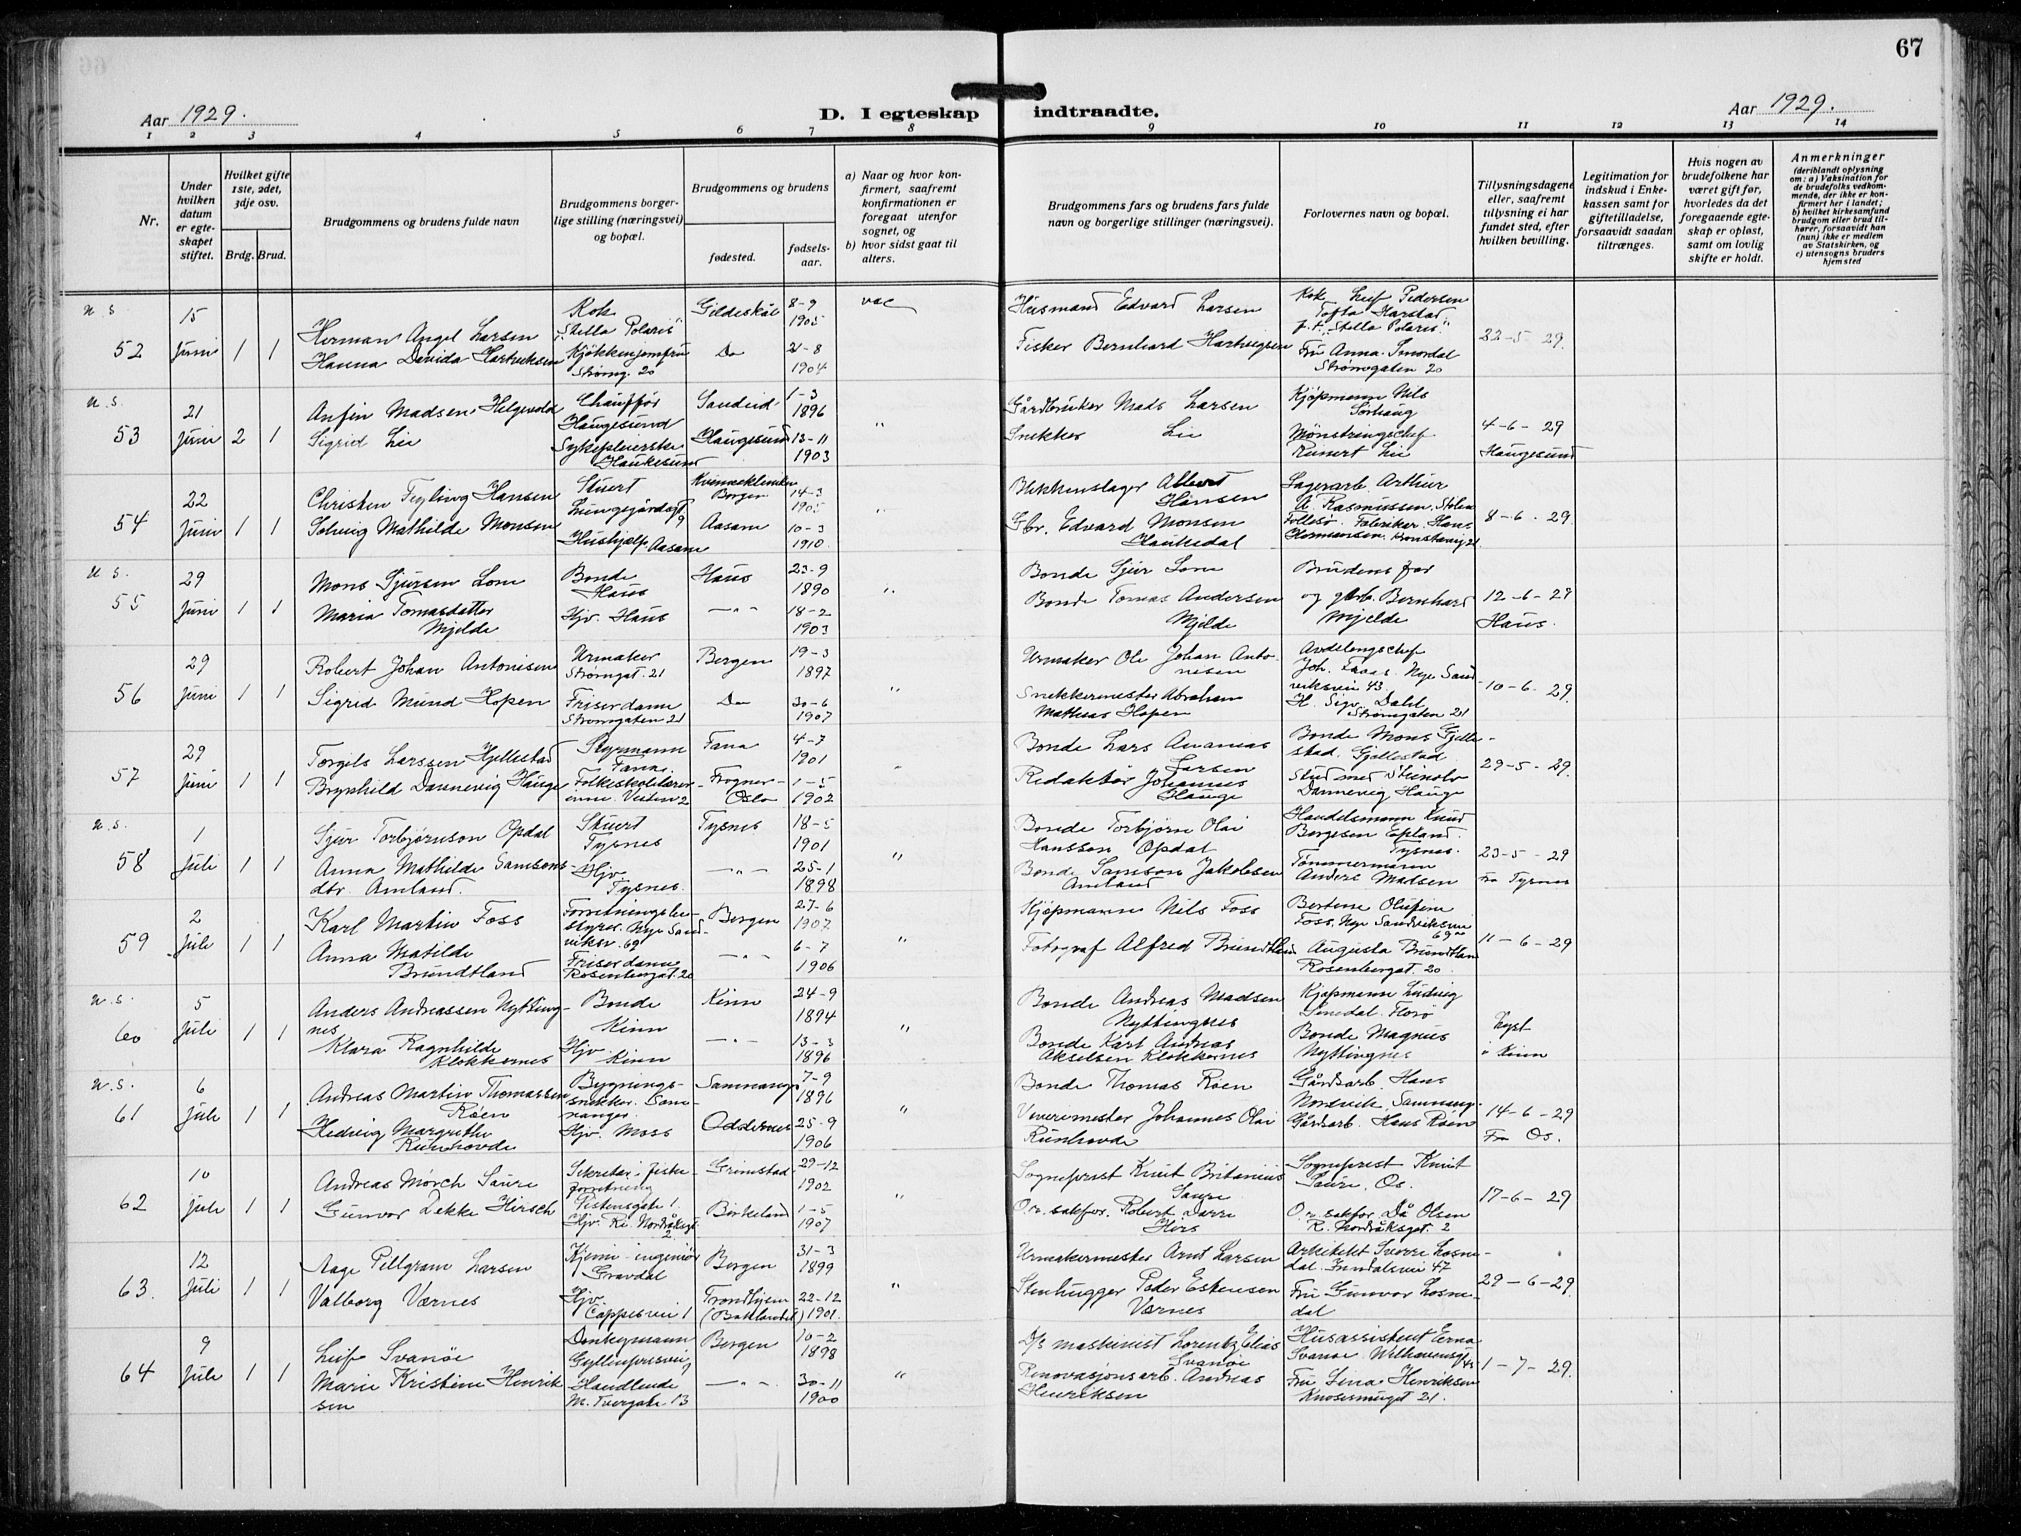 67
Aar 1929.
D. I egteskap indtraadte.
Aar 1929.
1 2 3 4 5 6 7 8 9 10 11 12 13 14
Nr.
Under hvilken datum er egteskapet stiftet.
Hvilket gifte 1ste, 2det, 3dje osv.
Brdg. Brud.
Brudgommens og brudens fulde navn
Brudgommens borgerlige stilling (næringsvei) og bopæl.
Brudgommens og brudens
fødested.
fødselsaar.
a) Naar og hvor konfirmert, saafremt konfirmationen er foregaat utenfor sognet, og
b) hvor sidst gaat til alters.
Brudgommens fars og brudens fars fulde navn og borgerlige stillinger (næringsvei).
Forlovernes navn og bopæl.
Tillysningsdagene eller, saafremt tillysning ei har fundet sted, efter hvilken bevilling.
Legitimation for indskud i Enkekassen samt for giftetilladelse, forsaavidt saadan tiltrænges.
Hvis nogen av brudefolkene har været gift før, hvorledes da det foregaaende egteskap er opløst, samt om lovlig skifte er holdt.
Anmerkninger
(deriblandt oplysning om: a) Vaksination for de brudefolks vedkommende, der ikke er konfirmert her i landet; b) hvilket kirkesamfund brudgom eller brud tilhører, forsaavidt han (hun) ikke er medlem av Statskirken, og c) utensogns bruders hjemsted
u. s.
52 15 Juni 1 1
Herman Angel Larsen
Hanna Davida Hartviksen
Kok
"Stella Polaris"
Kjøkkenjomfru
Strømg. 20
Gildeskål 8-9 1905
Do 21-8 1904
vac
Husmand Edvard Larsen
Fisker Bernhard Hartvigsen
Kok Leif Pedersen
Tofta Harstad
p. t. "Stella Polaris"
Fru Anna Smordal
Strømgaten 20
22-5-29.
u. s.
53 21 Juni 2 1
Anfin Madsen Helgevold
Sigrid Lie
Chauffør
Haugesund
Sykepleierske
Haukesund
Sandeid 1-3 1896
Haugesund 13-11 1903
"
Gårdbruker Mads Larsen
Snekker Lie
Kjøpmann Nils
Sørhaug
Mønstringschef
Reinert Lie
4-6-29
Haugesund
54 22 Juni 1 1
Christen Teyling Hansen
Solveig Mathilde Monsen
Stuert
Lungegårdsgt 9
Hushjælp Aasane
Kvinneklinikken
Bergen 14-3 1905
Aasane 10-3 1910
"
Blikkenslager Albert
Hansen
Gbr. Edvard Monsen
Haukedal
Lagerarb. Arthur
A. Rasmussen.
Follesø. Fabrikar. Hans
Hermansen.
8-6-29
u. s.
55 29 Juni 1 1
Mons Sjursen Lone
Maria Tomasdatter
Mjelde
Bonde
Haus
Hjv. Haus
Haus 23-9 1890
—"— 18-2 1903
"
Bonde Sjur Lone
Bonde Tomas Andersen
Mjelde
Brudens far
og gbrb. Bernhard
Mjelde
12-6-29
Haus.
56 29 Juni 1 1
Robert Johan Antonisen
Sigrid Mund Hopen
Urmaker
Strømgat. 21
Friserdame
Strømgaten 21
Bergen 19-3 1897
Do 30-6 1907
"
Urmaker Ole Johan Anto-
nesen
Snekkermester Abraham
Mathias Hopen
Avdelingschef
Joh. Nye Sand
viksvei 43
H. Sigv. Dahl
Strømgaten 21
10-6-29.
57 29 Juni 1 1
Torgils Larssen Hjellestad
Brynhild Dannevig Hauge
Styrmann
Fana
Folkeskolelærer-
inne.
Fana 4-7 1901
Frogner-
Oslo 1-5 1902
"
Bonde Lars Ananias
Larsen
Redaktør Johannes
Hauge
Bonde Mons Gjelle-
stad. Gjellestad
Stud med Steinolv
Dannevig Hauge
29-5-29.
u. s.
58 1 Juli 1 1
Sjur Torbjørnson Opdal
Anna Mathilde Samsons-
dtr. Amland.
Stuert
Tysnes
Hjv
Tysnes.
Tysnes 18-5 1901
—"— 25-1 1898
"
Bonde Torbjørn Olai
Hansson Opdal
Bonde Samson Jakobsen
Amland
Handelsmann Knud
Borgesen Epland.
Tysnes.
Tømmermann
Anders Madsen
23-5-29
Fra Tysnes
59 2 Juli 1 1
Karl Martin Foss
Anna Matilde
Brundtland
Forretningsbe-
styrer. Nye Sand-
viksv. 69
Friserdame
Rosenbergsgt. 20
Bergen 27-6 1907
—"— 6-7 1906
"
Kjøpmann Nils Foss
Fotograf Alfred Brundtland
Bertine Olufine
Foss, Nye Sandviksvei
69
Augusta Brundtland
Rosenbergsgt. 20
11-6-29
u. s.
60 5 Juli 1 1
Anders Andreassen Nytting-
nes
Klara Ragnhilde
Klokkernes
Bonde
Kinn
Hjv.
Kinn
Kinn 24-9 1894
—"— 13-3 1896
"
Bonde Andreas Madsen
Nyttingnes
Bonde Karl Andreas
Akselsen Klokkernes
Kjøpmann Ludvig
Florø
Bonde Magnus
Nyttingnes
Lyst
i Kinn
u. s.
61 6 Juli 1 1
Andreas Martin Thomassen
Røen
Hedvig Margrethe
Runhovde
Bygnings-
snekker. Sam-
nanger
Hjv. Moss
Samnanger 7-9 1896
Oddernes 25-9 1906
"
Bonde Thomas Røen
Veverimester Johannes Olai
Runhovde
Gårdarb. Hans
Nordvik Samnang.
Gårdsarb. Hans Røen
14-6-29
Fra Os.
62 10 Juli 1 1
Andreas Mørch Saure
Gunvor Dekke Hirsch
Sekretær i fiske-
forretning
Hjv. Ri. Nordråksgt.
2
Grimstad 29-12 1902
Birkeland 1-5 1907
"
Sogneprest Knut Britanius
Saure
O.r. sakfør. Robert Darre
Hirs
Sogneprest Knut
Saure. Os.
O. r. sakfør Då Olsen
R. Nordråksgt. 2
17-6-29
63. 12 Juli 1 1
Aage Pillgram Larsen
Valborg Værnes
Kjemi-ingeniør
Gravdal
Hjv.
Cappesvei 1
Bergen 31-3 1899
Trondhjem
(Baklandet) 22-12 1901.
"
Urmakermester Arnt Larsen
Stenhugger Peder Estensen
Værnes
Arkitekt Sverre Losne-
dal. 47
Fru Gunvor Losne-
dal
29-6-29.
64 9 Juli 1 1
Leif Svanøe
Marie Kristine Henrik
sen
Donkeymann
Gyllenprisvei
Handlende
M. Tvergate 13
Bergen 10-2 1898
—"— 30-11 1900
"
D/s maskinist Lorentz Elias
Svanøe
Renovasjonsarb. Andreas
Henriksen
Husassistent Erna
Svanøe. Welhavensgt
45
Fru Lina Henriksen
21.
1-7-29.